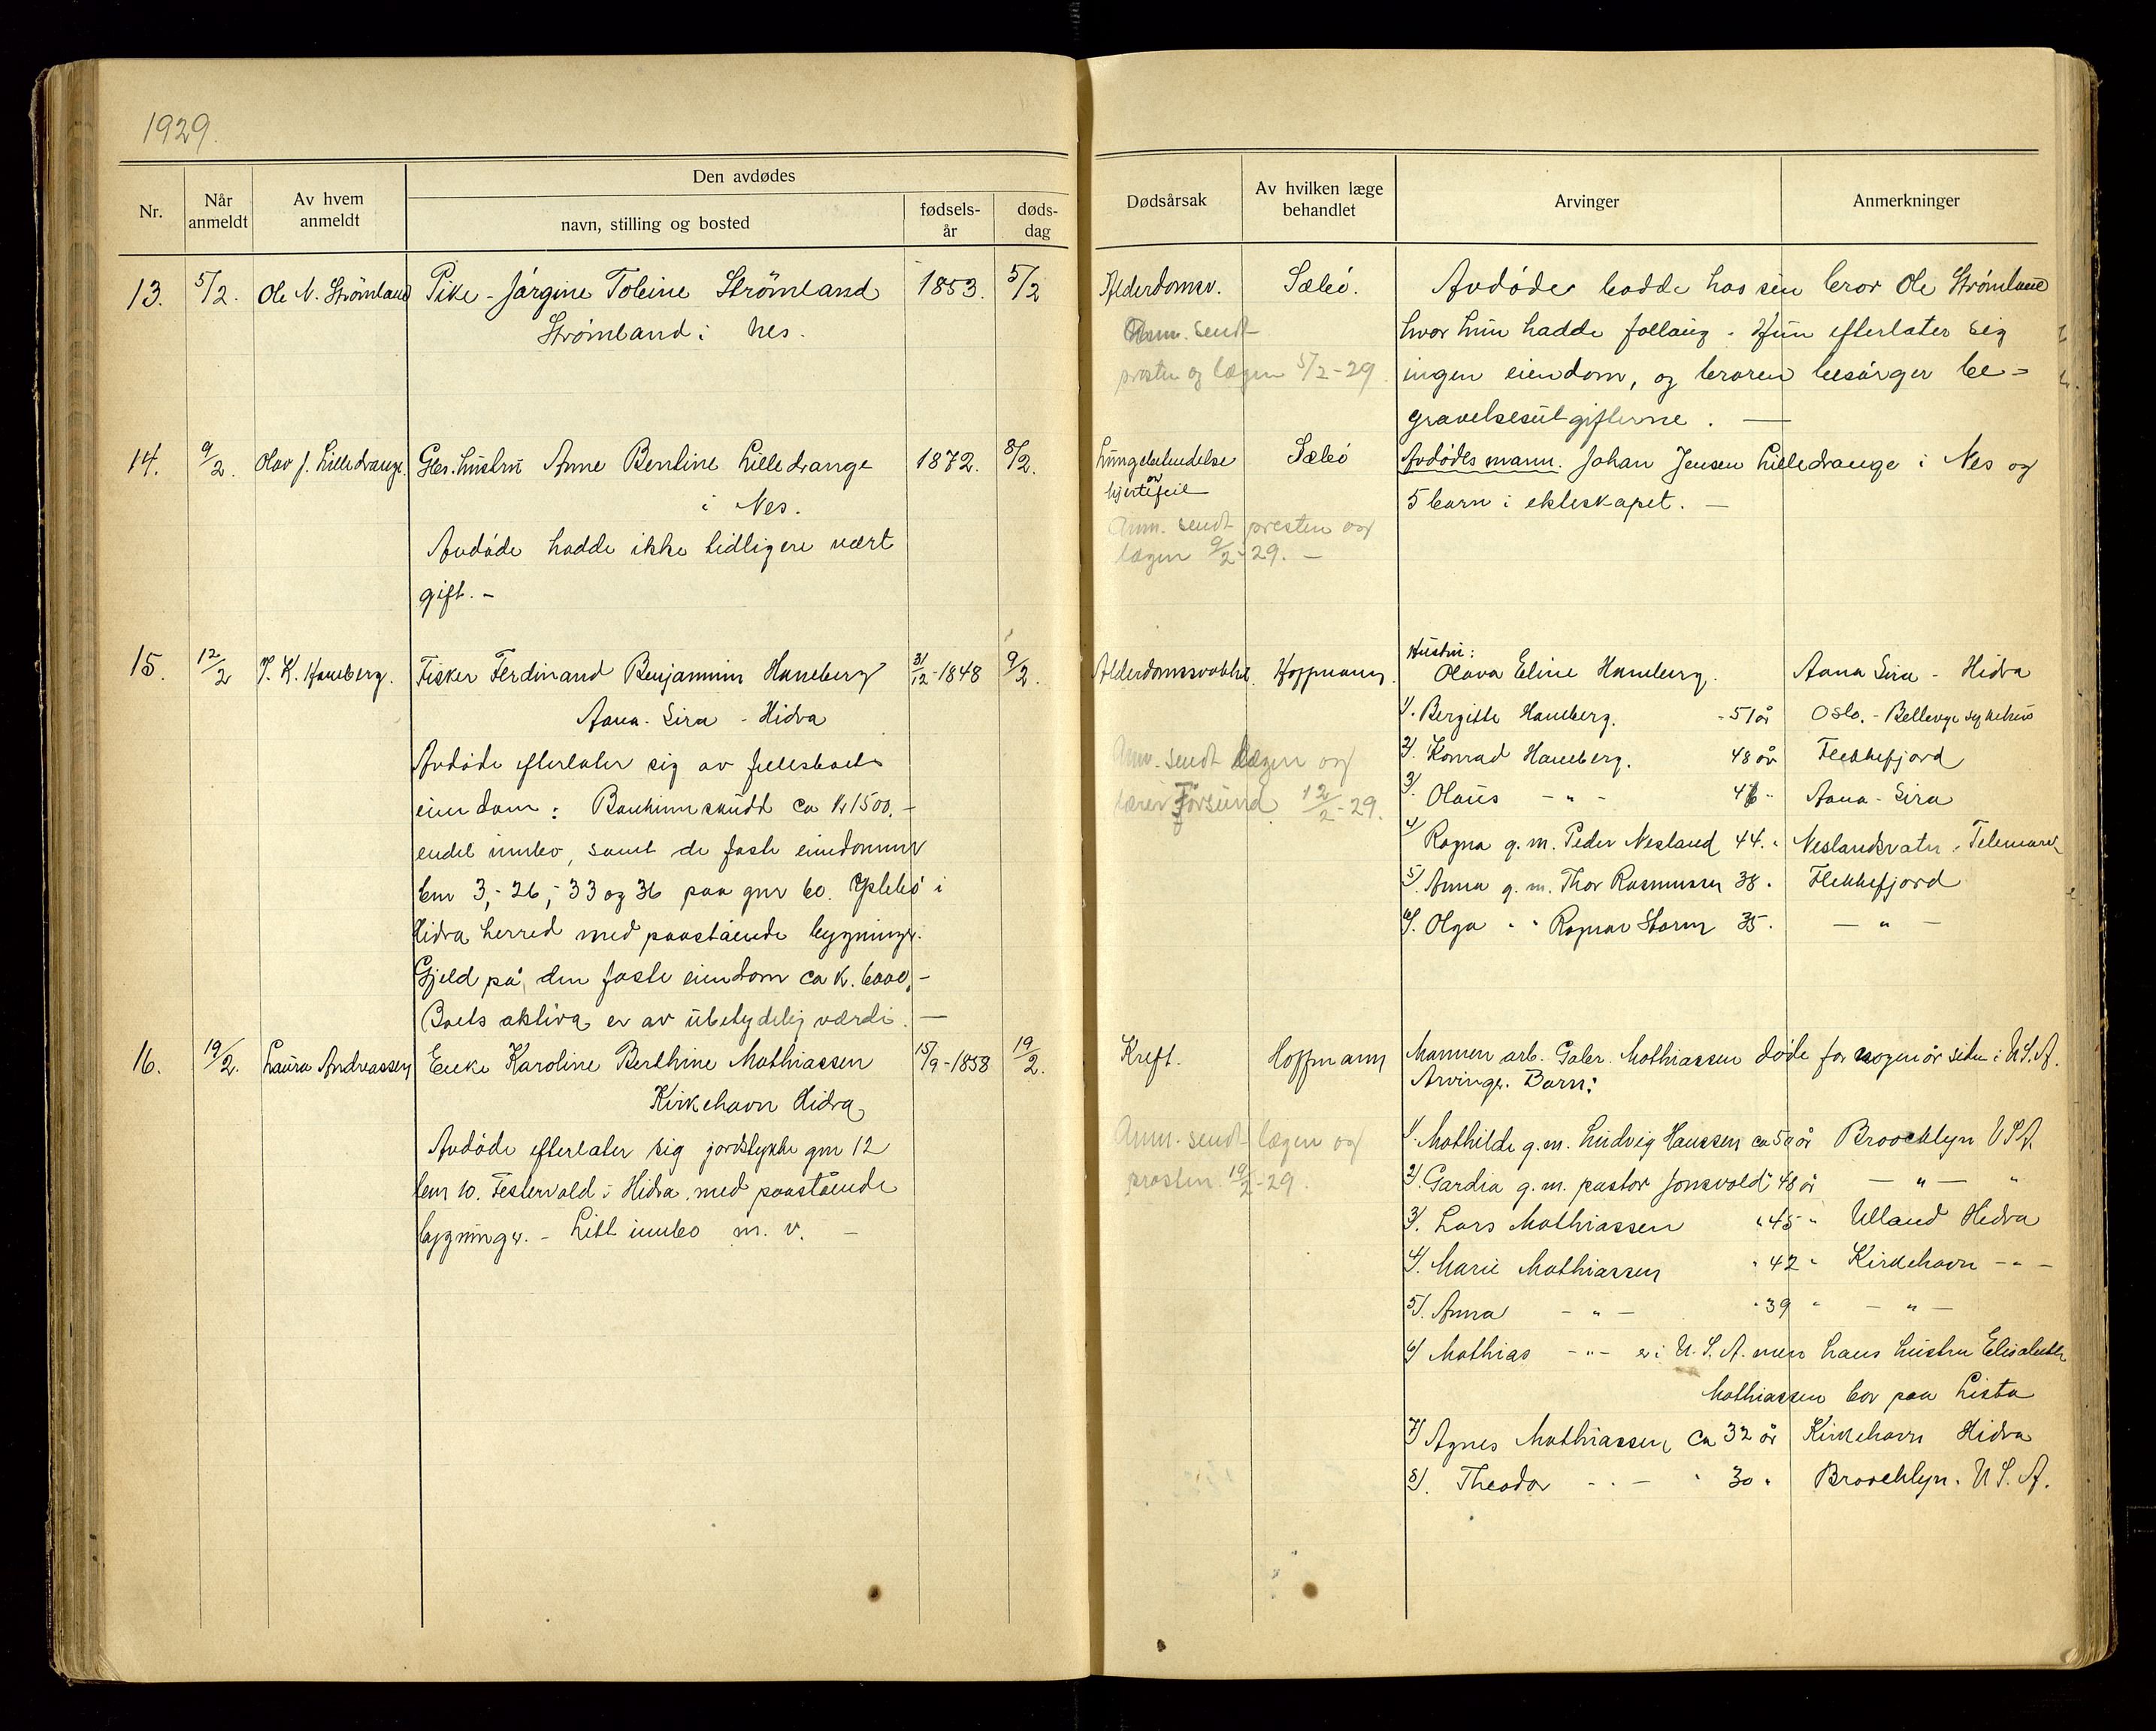 1929.
Nr.
Når anmeldt
Av hvem anmeldt
Den avdødes
navn, stilling og bosted
fødsels-år
døds-dag
Dødsårsak
Av hvilken læge behandlet
Arvinger
Anmerkninger
13. 5/2. Ole N. Strömland Pike - Jörgine Tobine Strömland 1853. 5/2
Strömland i Nes.
Alderdomsv. Sæbö.
Anm. sendt
presten og lægen 5/2-29.
Avdöde bodde hos sin bror Ole Strömland
hvor hun hadde follaug. Hun efterlater sig
ingen eiendom, og broren besörger be=
gravelsesutgifterne. —
14. 9/2. Olav J. Lilledrange. Gbr. hustru Anne Bentine Lilledrange 1872. 8/2.
i Nes.
Avdöde hadde ikke tidligere vært
gift. -
Lungebetendelse Sæbö
og
hjertefeil
Anm. sendt presten og
lægen 9/2-29. —
Avdödes mann. Johan Jensen Lilledrange i Nes og
5 barn i ekteskapet. —
15. 12/2 J. K. Haneberg. Fisker Ferdinand Benjamin Haneberg 31/12-1848 9/2.
Aana-Sira - Hidra
Avdöde efterlater sig av fellesboets
eiendom: Bankinnskudd ca kr 1500,-
endel innbo, samt de faste eiendommer
bnr 3,- 26,- 33 og 36 paa gnr 60. i
Hidra herred med paastående bygninger.
Gjeld på den faste eiendom ca k. 6000,-
Boets aktiva er av ubetydelig værdi. —
Alderdomssvakhet Hoffmann.
Anm. sendt lægen og
12/2-29.
Hustru:
Olava Eline Haneberg. Aana Sira - Hidra
1/. Bergitte Haneberg. - 51 år Oslo. - sykehus
2/. Konrad Haneberg. 48 år Flekkefjord
3/. Olaus - " - 46 " Aana-Sira
4/ Ragna g. m. Peder Nesland 44. " Neslandsvatn. Telemark
5/. Anna g. m. Thor Rasmussen 38. Flekkefjord
6/. Olga " " Ragnar Storm 35. — " —
16. 19/2. Laura Andreassen Enke Karoline Berthine Mathiassen 15/9-1858 19/2.
Kirkehavn Hidra
Avdöde efterlater sig jordstykke gnr 12
bnr 10. Festervold i Hidra. med paastående
bygninger. - Litt innbo m. v. —
Kreft. Hoffmann
Anm. sendt lægen og
presten. 19/2-29.
Mannen arb. Gabr. Mathiassen döde for nogen år siden i U.S.A.
Arvinger. Barn:
1/. Mathilde g. m. Ludvig Hanssen ca 50 år Broocklyn U S A.
2/. Gardia g. m. pastor Jonsvold " 48 år — " — "
3/. Lars Mathiassen " 45 " Ulland Hidra
4/. Marie Mathiassen " 42 " Kirkehavn - " -
5/. Anna - " - " 39 " — " —
6/ Mathias - " - er i U. S. A. men hans hustru Elisabeth
Mathiassen bor paa Lista
7/ Agnes Mathiassen ca 32 år Kirkehavn Hidra
8/. Theodor - " - " 30 " Broocklyn. U S. A.